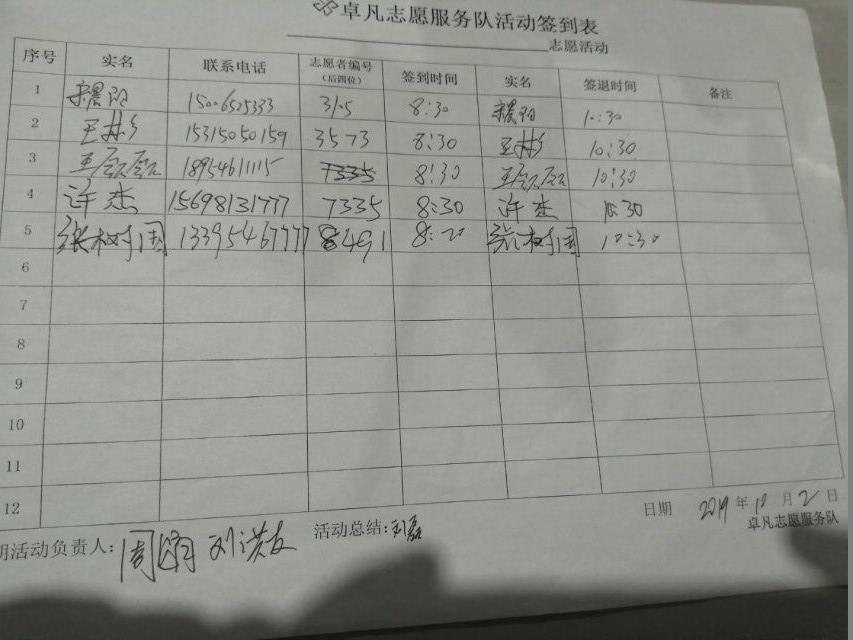 卓凡志愿服务队活动签到表
志愿活动
序号 实名 联系电话 志愿者编号(后四位) 签到时间 实名 签退时间 备注
1 8:30 10:30
2 15315050159 3573 8:30 10:30
3 18954611115 7335 8:30 10:30
4 许杰 15698131777 7335 8:30 许杰 10:30
5 张树国 13395467777 8491 8:20 张树国 10:30
6
7
8
9
10
11
12
日期 2019年10月2日
卓凡志愿服务队
明活动负责人: 活动总结:刘磊